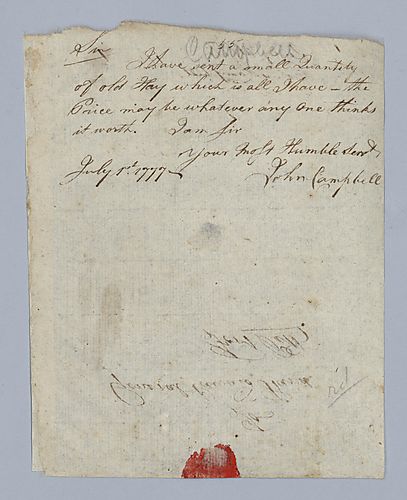 Campbell
Sir
I Have sent a small Quantity
of old Hay which is all I have – the
Price may be whatever any one thinks
it worth. I am Sir
Your Most Humble Servt
July 1st 1777 John Campbell
To
General
Fort Pitt